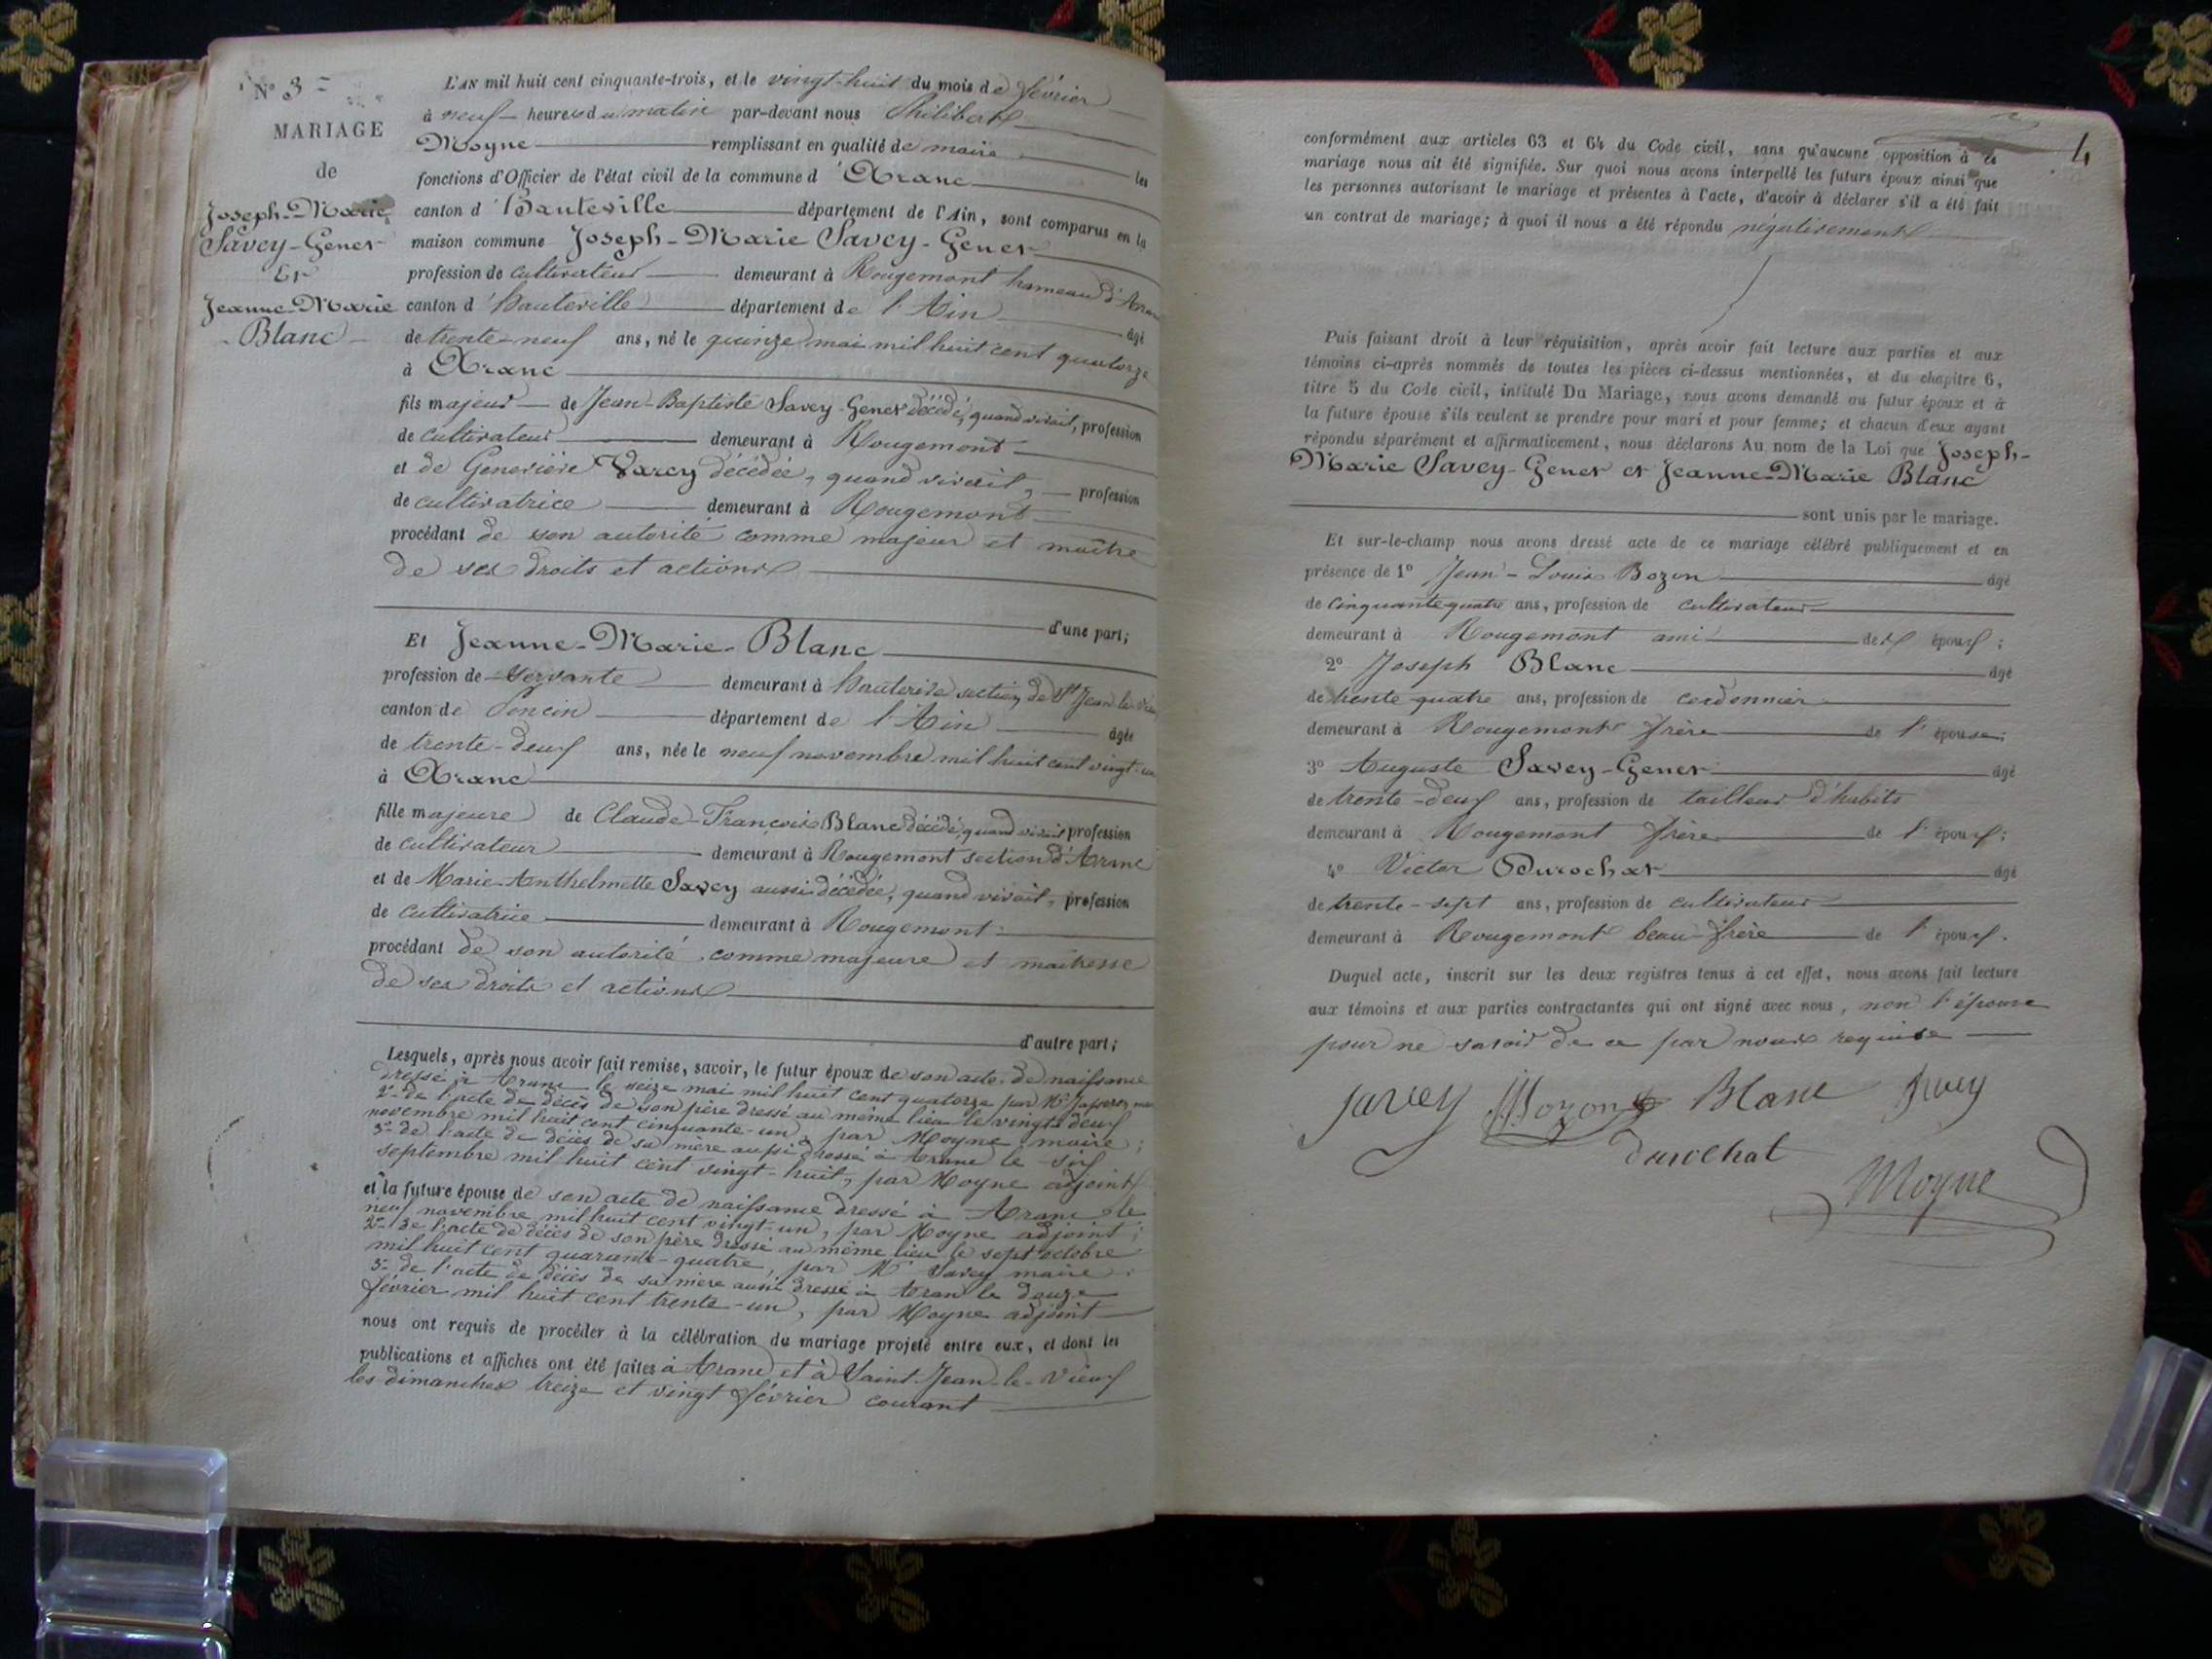 N° 3
MARIAGE
de
Joseph-Marie
Savey-Genet
Et
Jeanne-Marie
Blanc
L'AN mil huit cent cinquante-trois, et le vingt-huit du mois de février
à neuf heures du matin par-devant nous Philibert
Moyne remplissant en qualité de maire les
fonctions d'Officier de l'état civil de la commune d'Aranc
canton d'Hauteville département de l'Ain, sont comparus en la
maison commune Joseph-Marie Savey-Genet
profession de cultivateur demeurant à Rougemont hameau d'Aranc
canton d'hauteville département de l'Ain âgé
de trente-neuf ans, né le quinze mai mil huit cent quatorze
à Aranc
fils majeur de Jean-Baptiste Savey-Genet décédé, quand vivait, profession
de cultivateur demeurant à Rougemont
et de Geneviève Varcy décédée, quand vivait, profession
de cultivatrice demeurant à Rougemont
procédant de son autorité comme majeur et maître
de ses droits et actions
d'une part;
Et Jeanne-Marie-Blanc
profession de servante demeurant à hauterive section de St Jean-le-Vieux
canton de Poncin département de l'Ain âgée
de trente-deux ans, née le neuf novembre mil huit cent vingt-un
à Aranc
fille majeure de Claude-François Blanc décédé, quand vivait profession
de cultivateur demeurant à Rougemont section d'Aranc
et de Marie-Anthelmette Savey aussi décédée, quand vivait, profession
de cultivatrice demeurant à Rougemont
procédant de son autorité comme majeure et maitresse
de ses droits et actions
d'autre part;
Lesquels, après nous avoir fait remise, savoir, le futur époux de son acte de naissance
dressé à Aranc le seize mai mil huit cent quatorze par Mr maire
2° de l'acte de décès de son père dressé au même lieu le vingt-deux
novembre mil huit cent cinquante-un, par Moyne maire;
3° de l'acte de décès de sa mère aussi dressé à Aranc le six
septembre mil huit cent vingt-huit, par Moyne adjoint
et la future épouse de son acte de naissance dressé à Aranc le
neuf novembre mil huit cent vingt-un, par Moyne adjoint;
2° de l'acte de décès de son père dressé au même lieu le sept octobre
mil huit cent quarante-quatre, par Mr Savey maire.
3° de l'acte de décès de sa mère aussi dressé à Aran le douze
février mil huit cent trente-un, par Moyne adjoint
nous ont requis de procéder à la célébration du mariage projeté entre eux, et dont les
publications et affiches ont été faites à Aranc et à Saint-Jean-le-Vieux
les dimanches treize et vingt février courant
4
conformément aux articles 63 et 64 du Code civil, sans qu'aucune opposition à ce
mariage nous ait été signifiée. Sur quoi nous avons interpellé les futurs époux ainsi que
les personnes autorisant le mariage et présentes à l'acte, d'avoir à déclarer s'il a été fait
un contrat de mariage; à quoi il nous a été répondu négativement
Puis faisant droit à leur réquisition, après avoir fait lecture aux parties et aux
témoins ci-après nommés de toutes les pièces ci-dessus mentionnées, et du chapitre 6,
titre 5 du Code civil, intitulé Du Mariage, nous avons demandé au futur époux et à
la future épouse s'ils veulent se prendre pour mari et pour femme; et chacun d'eux ayant
répondu séparément et affirmativement, nous déclarons Au nom de la Loi que Joseph-
Marie Savey-Genet et Jeanne-Marie Blanc
sont unis par le mariage.
Et sur-le-champ nous avons dressé acte de ce mariage célébré publiquement et en
présence de 1° Jean-Louis Bozon âgé
de cinquante-quatre ans, profession de cultivateur
demeurant à Rougemont ami des époux;
2° Joseph Blanc âgé
de trente-quatre ans, profession de cordonnier
demeurant à Rougemont frère de l'épouse;
3° Auguste Savey-Genet âgé
de trente-deux ans, profession de tailleur d'habits
demeurant à Rougemont frère de l'époux;
4° Victor Durochat âgé
de trente-sept ans, profession de cultivateur
demeurant à Rougemont beau-frère de l'époux.
Duquel acte, inscrit sur les deux registres tenus à cet effet, nous avons fait lecture
aux témoins et aux parties contractantes qui ont signé avec nous, non l'épouse
pour ne savoir de ce par nous requise
Savey Bozon Blanc Savey
durochat
Moyne